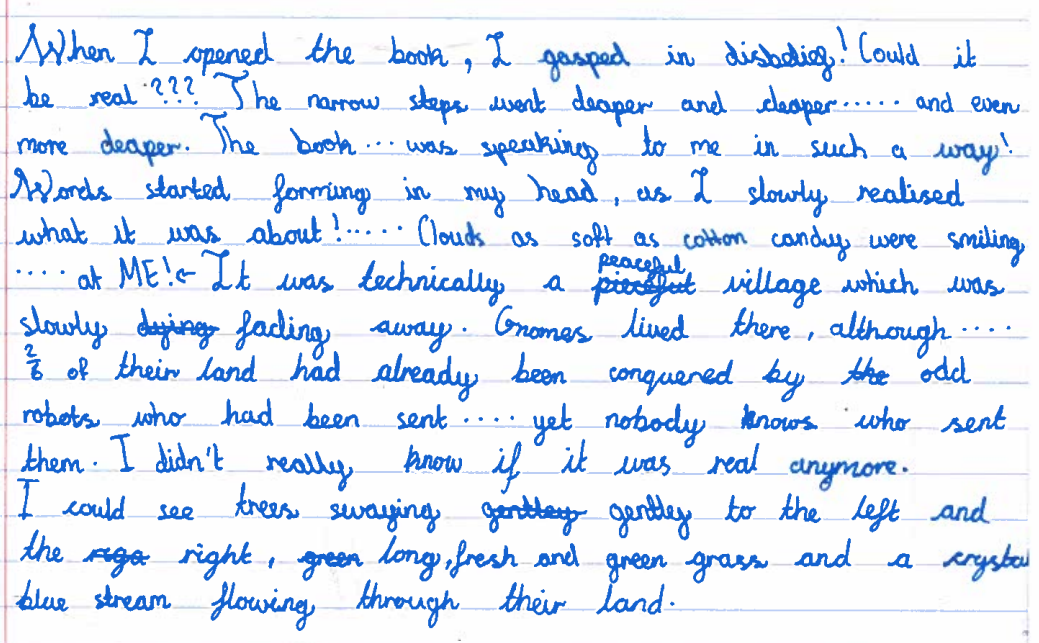 When I opened the book, I gasped in disbelief! Could it
be real??? The narrow steps went deaper and deaper..... and even
more deaper. The book... was speaking to me in such a way!
Words started forming in my head, as I slowly realised
what it was about!..... Clouds as soft as cotton candy were smiling
.... at ME!← It was technically a peaceful village which was
slowly dying fading away. Gnomes lived there, although ....
2/6 of their land had already been conquered by the odd
robots who had been sent .... yet nobody knows who sent
them. I didn't really know if it was real anymore.
I could see trees swaying gentley gentley to the left and
the riga right, green long, fresh and green grass and a crystal
blue stream flowing through their land.